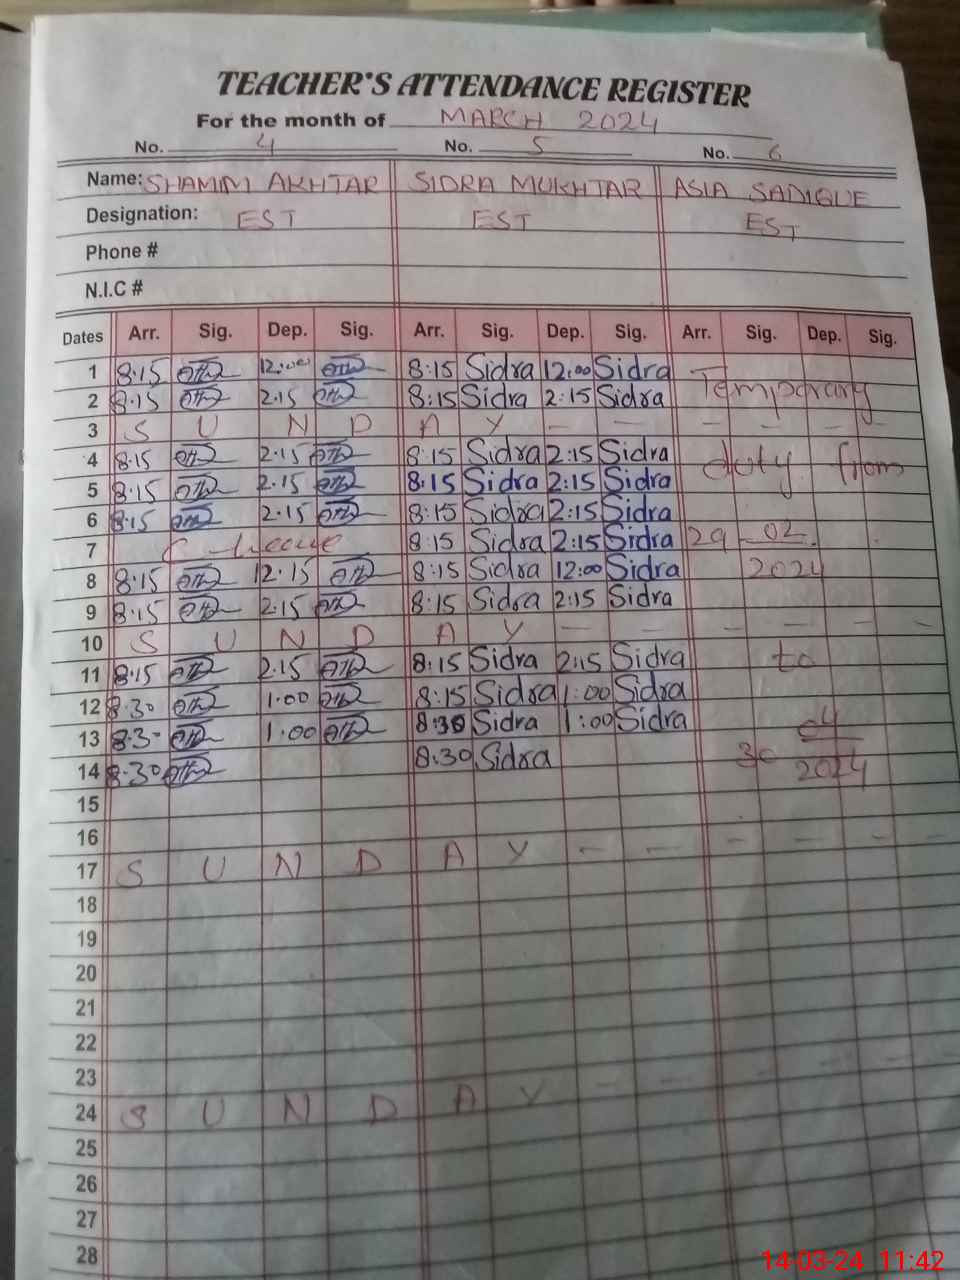 TEACHER'S ATTENDANCE REGISTER
For the month of MARCH 2024
No. 4 No. 5 No. 6
Name: SHAMIM AKHTAR SIDRA MUKHTAR ASIA SADIQUE
Designation: EST EST EST
Phone #
N.I.C #
Dates Arr. Sig. Dep. Sig. Arr. Sig. Dep. Sig. Arr. Sig. Dep. Sig.
1 8:15 12:00 8:15 Sidra 12:00 Sidra Temporary
2 8:15 2:15 8:15 Sidra 2:15 Sidra
3 S U N D A Y - - - - - -
4 8:15 2:15 8:15 Sidra 2:15 Sidra duty from
5 8:15 2:15 8:15 Sidra 2:15 Sidra
6 8:15 2:15 8:15 Sidra 2:15 Sidra
7 C-leave 8:15 Sidra 2:15 Sidra 29 - 02.
8 8:15 12:15 8:15 Sidra 12:00 Sidra 2024
9 8:15 2:15 8:15 Sidra 2:15 Sidra
10 S U N D A Y - - - - - -
11 8:15 2:15 8:15 Sidra 2:15 Sidra to
12 8:30 1:00 8:15 Sidra 1:00 Sidra
13 8:3- 1:00 8:30 Sidra 1:00 Sidra 04
14 8:30 8:30 Sidra 30 2024
15
16
17 S U N D A Y - - - - - -
18
19
20
21
22
23
24 S U N D A Y - - - - - -
25
26
27
28
14-03-24 11:42